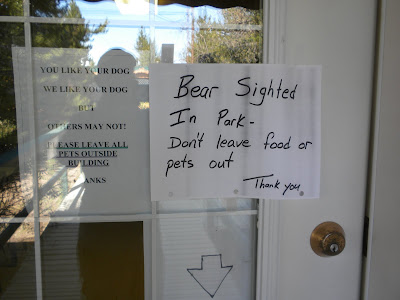 YOU LIKE YOUR DOG
WE LIKE YOUR DOG
BUT
OTHERS MAY NOT!
PLEASE LEAVE ALL
PETS OUTSIDE
BUILDING
ANKS
Bear Sighted
In Park-
Don't leave food or
pets out
Thank you